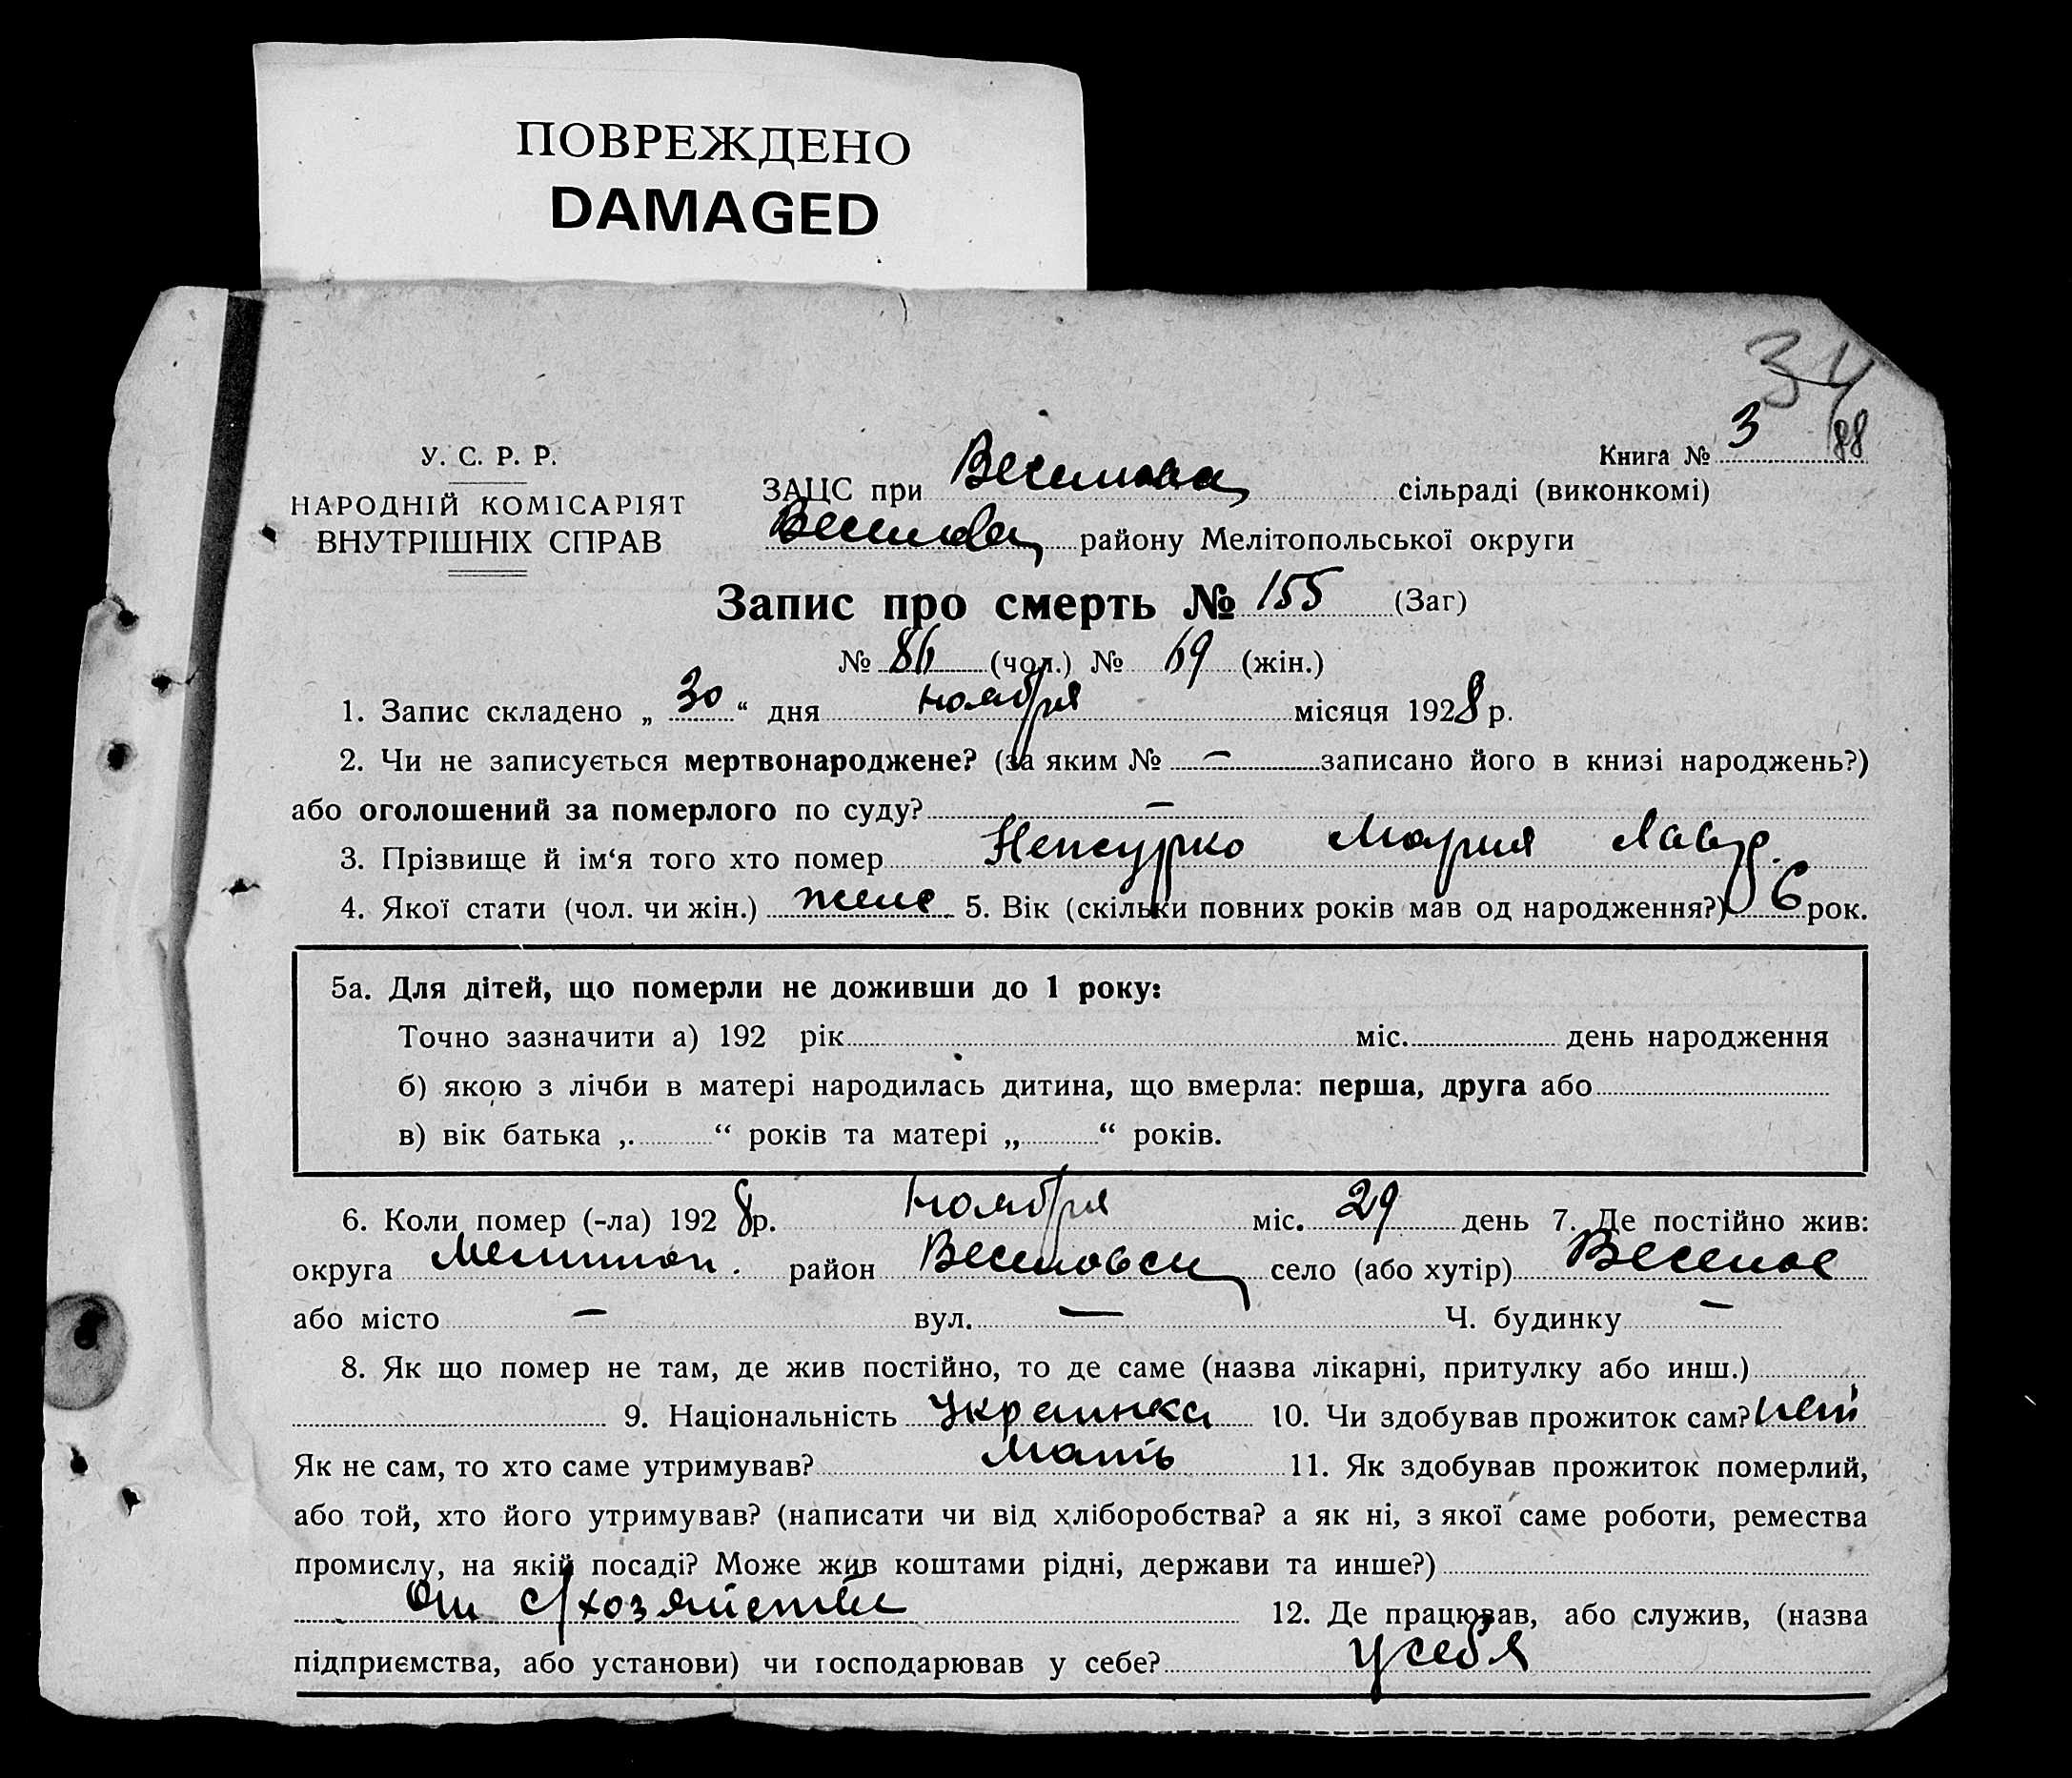 ПОВРЕЖДЕНО
DAMAGED
34
Книга № 3 88
У. С. Р. Р.
НАРОДНІЙ КОМІСАРІЯТ
ВНУТРІШНІХ СПРАВ
ЗАЦС при сільраді (виконкомі)
району Мелітопольської округи
Запис про смерть № 155 (Заг)
№ 86 (чол.) № 69 (жін.)
1. Запис складено „ 30 “ дня ноября місяця 1928 р.
2. Чи не записується мертвонароджене? (за яким № — записано його в книзі народжень?)
або оголошений за померлого по суду? —
3. Прізвище й ім‘я того хто помер Мария Лавр.
4. Якої стати (чол. чи жін.) жене 5. Вік (скільки повних років мав од народження?) 6 рок.
5а. Для дітей, що померли не доживши до 1 року:
Точно зазначити а) 192 рік міс. день народження
б) якою з лічби в матері народилась дитина, що вмерла: перша, друга або
в) вік батька „ “ років та матері „ “ років.
6. Коли помер (-ла) 1928 р. ноября міс. 29 день 7. Де постійно жив:
округа Мелитоп. район Веселовск село (або хутір) Веселое
або місто — вул. — Ч. будинку —
8. Як що помер не там, де жив постійно, то де саме (назва лікарні, притулку або инш.)
9. Національність Украинка 10. Чи здобував прожиток сам? нет
Як не сам, то хто саме утримував? Мать 11. Як здобував прожиток померлий,
або той, хто його утримував? (написати чи від хліборобства? а як ні, з якої саме роботи, ремества
промислу, на якій посаді? Може жив коштами рідні, держави та инше?)
От с/хозяйства 12. Де працював, або служив, (назва
підприємства, або установи) чи господарював у себе? у себя